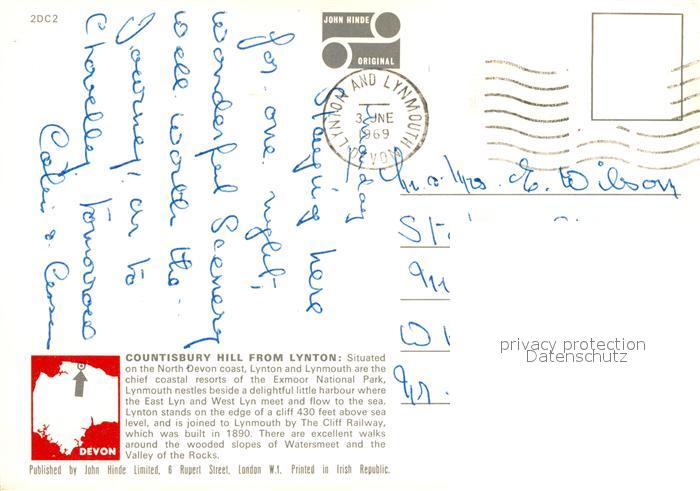 2DC2
JOHN HINDE
ORIGINAL
LYNTON AND LYNMOUTH
3 JNE
1969
DEVON
Monday
Staying here
for one night;
wonderful Scenery
well worth the
Journey; on to
Chovelly tomorrow
Colin &
Mr. & Mrs. E. Wilson
St
privacy protection
Datenschutz
COUNTISBURY HILL FROM LYNTON: Situated
on the North Devon coast, Lynton and Lynmouth are the
chief coastal resorts of the Exmoor National Park,
Lynmouth nestles beside a delightful little harbour where
the East Lyn and West Lyn meet and flow to the sea.
Lynton stands on the edge of a cliff 430 feet above sea
level, and is joined to Lynmouth by The Cliff Railway,
which was built in 1890. There are excellent walks
around the wooded slopes of Watersmeet and the
Valley of the Rocks.
DEVON
Published by John Hinde Limited, 6 Rupert Street, London W.1. Printed in Irish Republic.